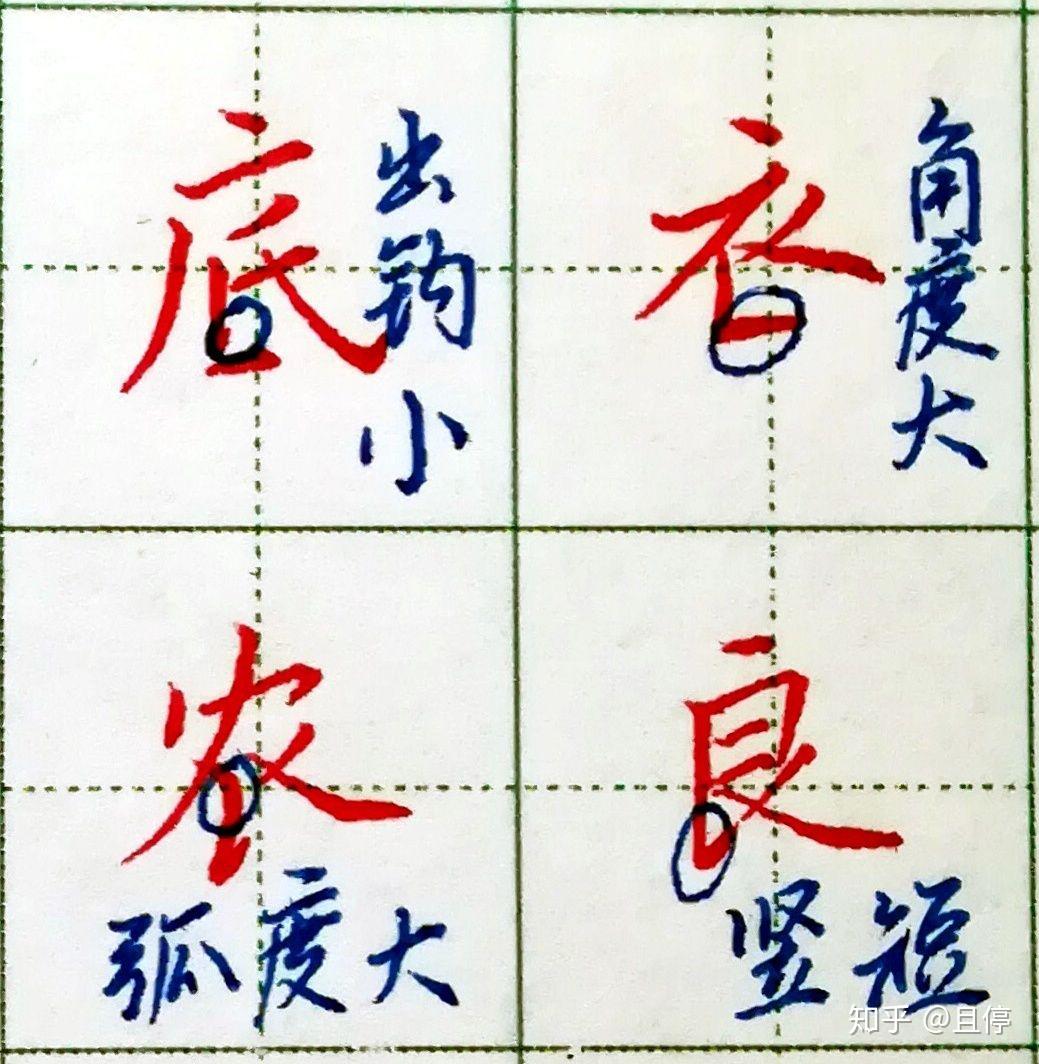 底
出钩小
衣
角度大
农
弧度大
良
竖短
知乎 @且停